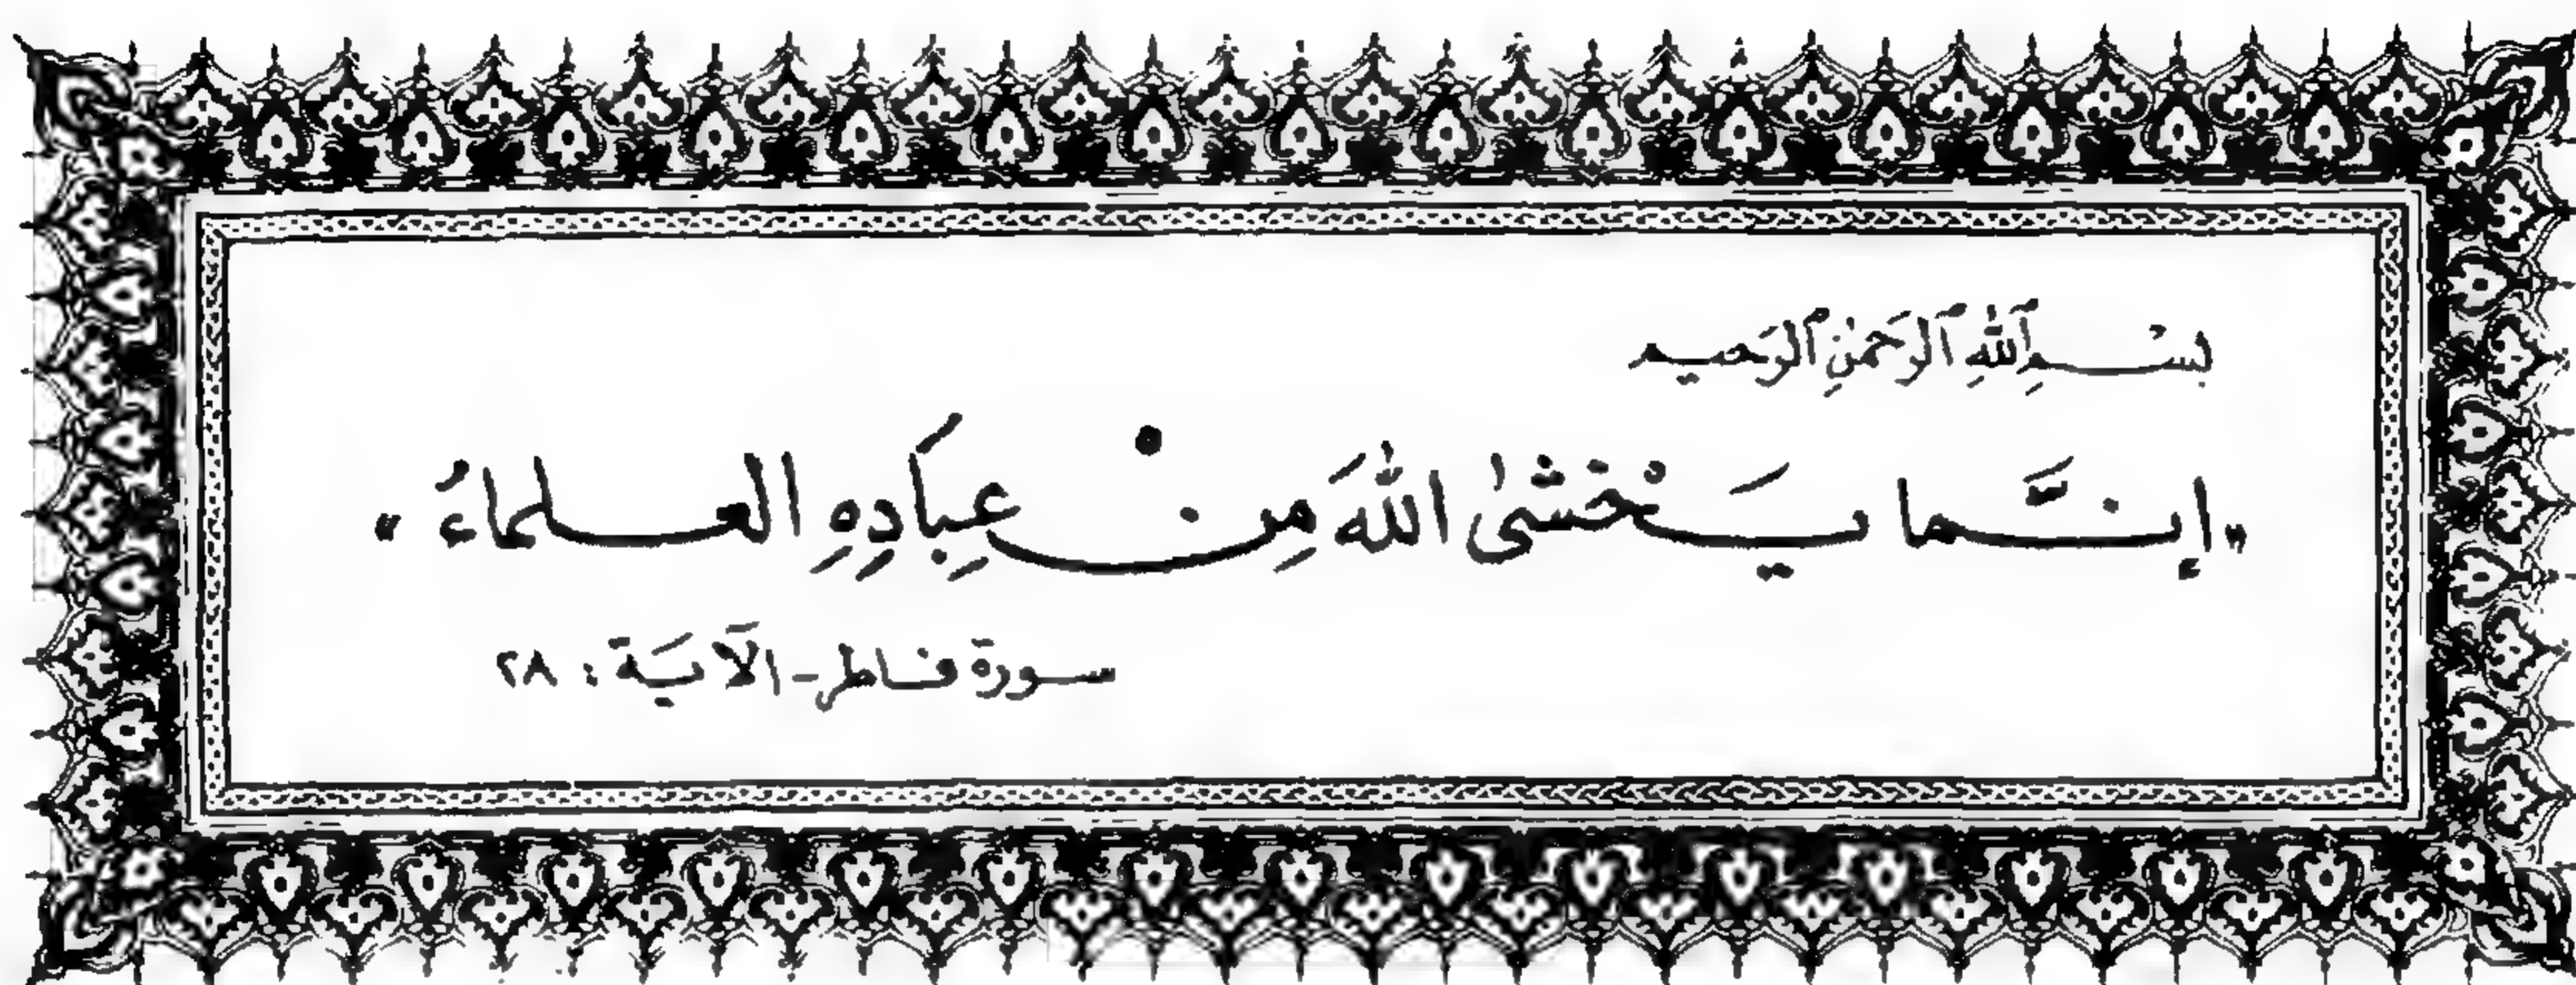 بسم الله الرحمن الرحيم
"إِنَّما يَخْشىٰ اللهَ مِنْ عِبَادِهِ العلماءُ"
سورة فاطر - الآية : ٢٨